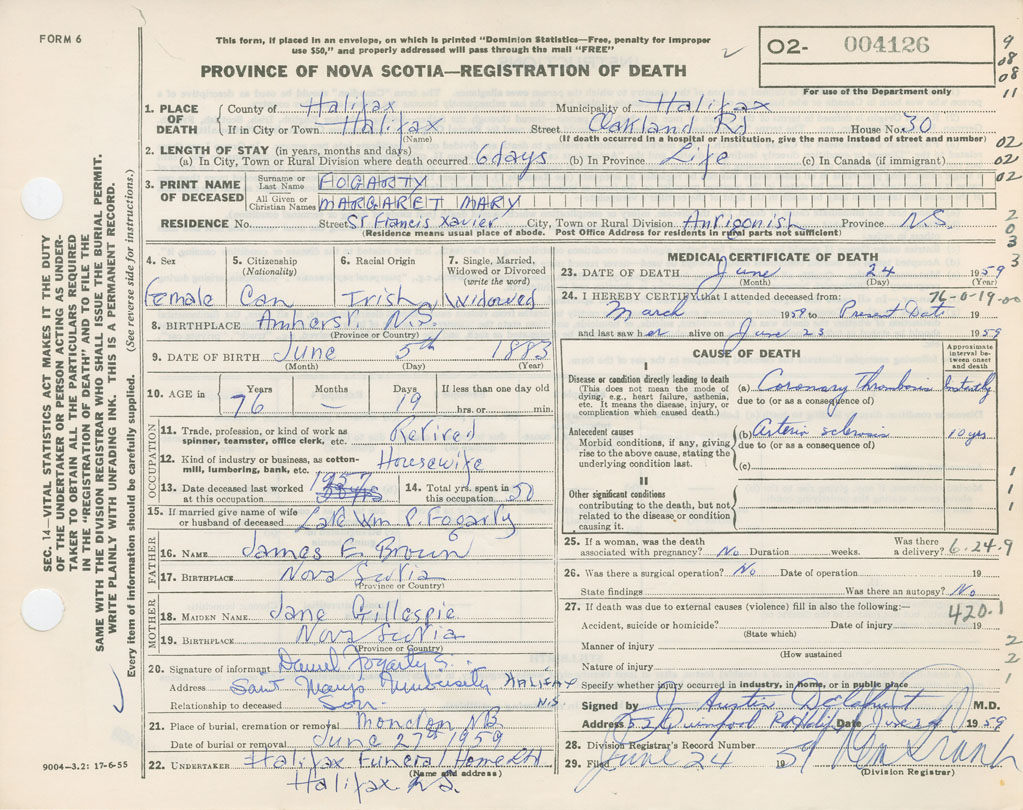 FORM 6
This form, if placed in an envelope, on which is printed "Dominion Statistics—Free, penalty for improper
use $50," and properly addressed will pass through the mail "FREE"
PROVINCE OF NOVA SCOTIA—REGISTRATION OF DEATH
O2- 004126
For use of the Department only
9
08
08
11
02
02
02
2
0
3
3
SEC. 14—VITAL STATISTICS ACT MAKES IT THE DUTY
OF THE UNDERTAKER OR PERSON ACTING AS UNDER-
TAKER TO OBTAIN ALL THE PARTICULARS REQUIRED
IN THE "REGISTRATION OF DEATH" AND TO FILE THE
SAME WITH THE DIVISION REGISTRAR WHO SHALL ISSUE THE BURIAL PERMIT.
WRITE PLAINLY WITH UNFADING INK. THIS IS A PERMANENT RECORD.
Every item of information should be carefully supplied. (See reverse side for instructions.)
1. PLACE OF DEATH County of Halifax Municipality of Halifax
If in City or Town Halifax Street Oakland Rd House No. 30
(Name) (If death occurred in a hospital or institution, give the name instead of street and number)
2. LENGTH OF STAY (in years, months and days)
(a) In City, Town or Rural Division where death occurred 6 days (b) In Province Life (c) In Canada (if immigrant)
3. PRINT NAME OF DECEASED Surname or Last Name FOGARTY
All Given or Christian Names MARGARET MARY
RESIDENCE No. Street St Francis Xavier City, Town or Rural Division Antigonish Province N.S.
(Residence means usual place of abode. Post Office Address for residents in rural parts not sufficient)
4. Sex 5. Citizenship (Nationality) 6. Racial Origin 7. Single, Married, Widowed or Divorced (write the word)
Female Can Irish Widowed
8. BIRTHPLACE Amherst. N.S.
(Province or Country)
9. DATE OF BIRTH June 5th 1883
(Month) (Day) (Year)
10. AGE in Years Months Days If less than one day old
76 — 19 hrs. or min.
OCCUPATION
11. Trade, profession, or kind of work as spinner, teamster, office clerk, etc. Retired
12. Kind of industry or business, as cotton-mill, lumbering, bank, etc. Housewife
13. Date deceased last worked at this occupation 1957 14. Total yrs. spent in this occupation 50
15. If married give name of wife or husband of deceased Late Wm P. Fogarty
FATHER
16. NAME James E Brown
17. BIRTHPLACE Nova Scotia
(Province or Country)
MOTHER
18. MAIDEN NAME Jane Gillespie
19. BIRTHPLACE Nova Scotia
(Province or Country)
20. Signature of informant Daniel Fogarty
Address Saint Mary's University HALIFAX
Relationship to deceased Son. N.S
21. Place of burial, cremation or removal Moncton NB
Date of burial or removal June 27th 1959
22. UNDERTAKER Halifax Funeral Home Ltd
(Name and address)
Halifax N.S.
9004—3.2: 17-6-55
MEDICAL CERTIFICATE OF DEATH
23. DATE OF DEATH June 24 1959
(Month) (Day) (Year)
24. I HEREBY CERTIFY that I attended deceased from: 76-0-19-00
March 1959 to Present Date 19
and last saw her alive on June 23 1959
CAUSE OF DEATH
Approximate interval between onset and death
I
Disease or condition directly leading to death
(This does not mean the mode of dying, e.g., heart failure, asthenia, etc. It means the disease, injury, or complication which caused death.)
(a) Coronary Thrombosis Instantly
due to (or as a consequence of)
Antecedent causes
Morbid conditions, if any, giving rise to the above cause, stating the underlying condition last.
(b) Arterio sclerosis 10 yrs
due to (or as a consequence of)
(c)
II
Other significant conditions
contributing to the death, but not related to the disease or condition causing it.
1
1
1
25. If a woman, was the death associated with pregnancy? No Duration weeks. Was there a delivery? 6-24-9
26. Was there a surgical operation? No Date of operation 19
State findings Was there an autopsy? No
27. If death was due to external causes (violence) fill in also the following:— 420.1
Accident, suicide or homicide? Date of injury 19
(State which)
Manner of injury 2
(How sustained)
Nature of injury 2
Specify whether injury occurred in industry, in home, or in public place 1
Signed by Austin M.D.
Address Quinpool Rd Hfx Date June 24 1959
28. Division Registrar's Record Number
29. Filed June 24 1959
(Division Registrar)